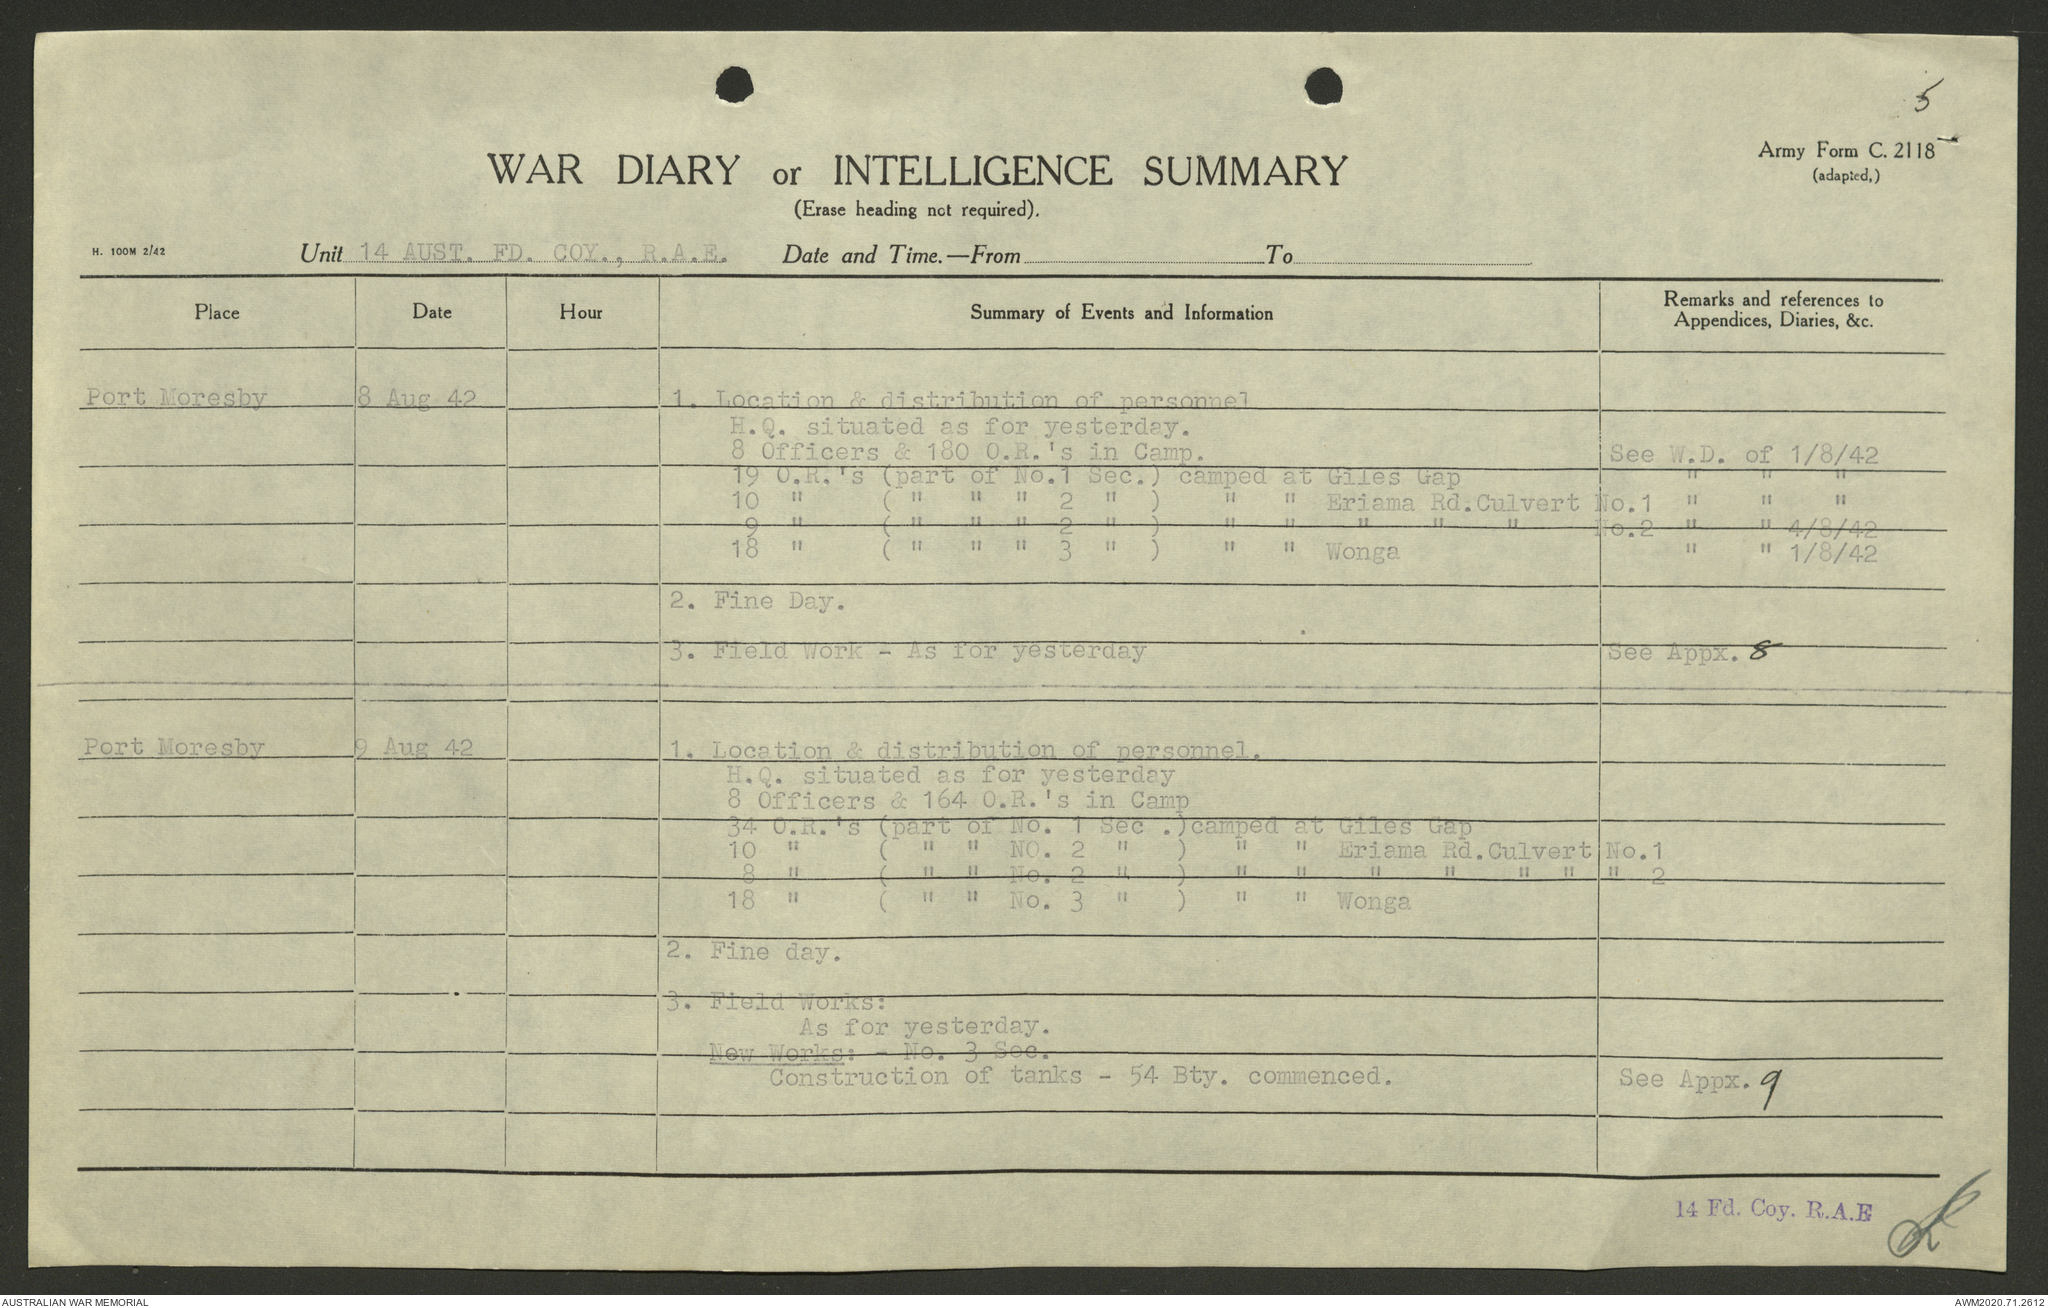 5
Army Form C. 2118
(adapted.)
WAR DIARY or INTELLIGENCE SUMMARY
(Erase heading not required).
H. 100M 2/42
Unit 14 AUST. FD. COY., R.A.E. Date and Time.—From To
Place Date Hour Summary of Events and Information Remarks and references to Appendices, Diaries, &c.
Port Moresby 8 Aug 42 1. Location & distribution of personnel
H.Q. situated as for yesterday.
8 Officers & 180 O.R.'s in Camp. See W.D. of 1/8/42
19 O.R.'s (part of No.1 Sec.) camped at Giles Gap " " "
10 " ( " " " 2 " ) " " Eriama Rd.Culvert No.1 " " "
9 " ( " " " 2 " ) " " " " " No.2 " " 4/8/42
18 " ( " " " 3 " ) " " Wonga " " 1/8/42
2. Fine Day.
3. Field Work - As for yesterday See Appx. 8
Port Moresby 9 Aug 42 1. Location & distribution of personnel.
H.Q. situated as for yesterday
8 Officers & 164 O.R.'s in Camp
34 O.R.'s (part of No. 1 Sec .)camped at Giles Gap
10 " ( " " NO. 2 " ) " " Eriama Rd.Culvert No.1
8 " ( " " No. 2 " ) " " " " " " " 2
18 " ( " " No. 3 " ) " " Wonga
2. Fine day.
3. Field Works:
As for yesterday.
New Works: - No. 3 Sec.
Construction of tanks - 54 Bty. commenced. See Appx. 9
14 Fd. Coy. R.A.E
AUSTRALIAN WAR MEMORIAL AWM2020.71.2612